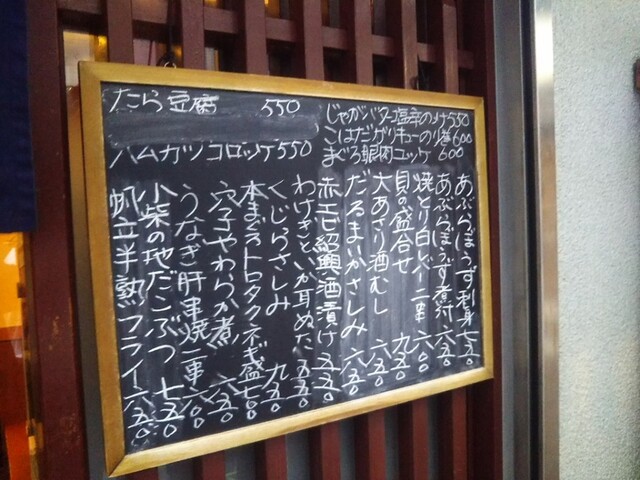 たら豆腐 550
ハムカツコロッケ 550
じゃがバター塩辛のっけ 550
こはだガリキューの小巻 600
まぐろ眼肉ユッケ 600
あぶらぼうず刺身 七五〇
あぶらぼうず煮付 六五〇
焼とり白レバー二串 六〇〇
貝の盛合せ 九五〇
大あさり酒むし 六五〇
だるまいかさしみ 六五〇
赤エビ紹興酒漬け 五五〇
わけぎといか耳ぬた 五五〇
くじらさしみ 九五〇
本まぐろトロタクネギ盛 七〇〇
穴子やわらか煮 六五〇
うなぎ肝串焼二串 六〇〇
小柴の地だこぶつ 七五〇
帆立半熟フライ 六五〇